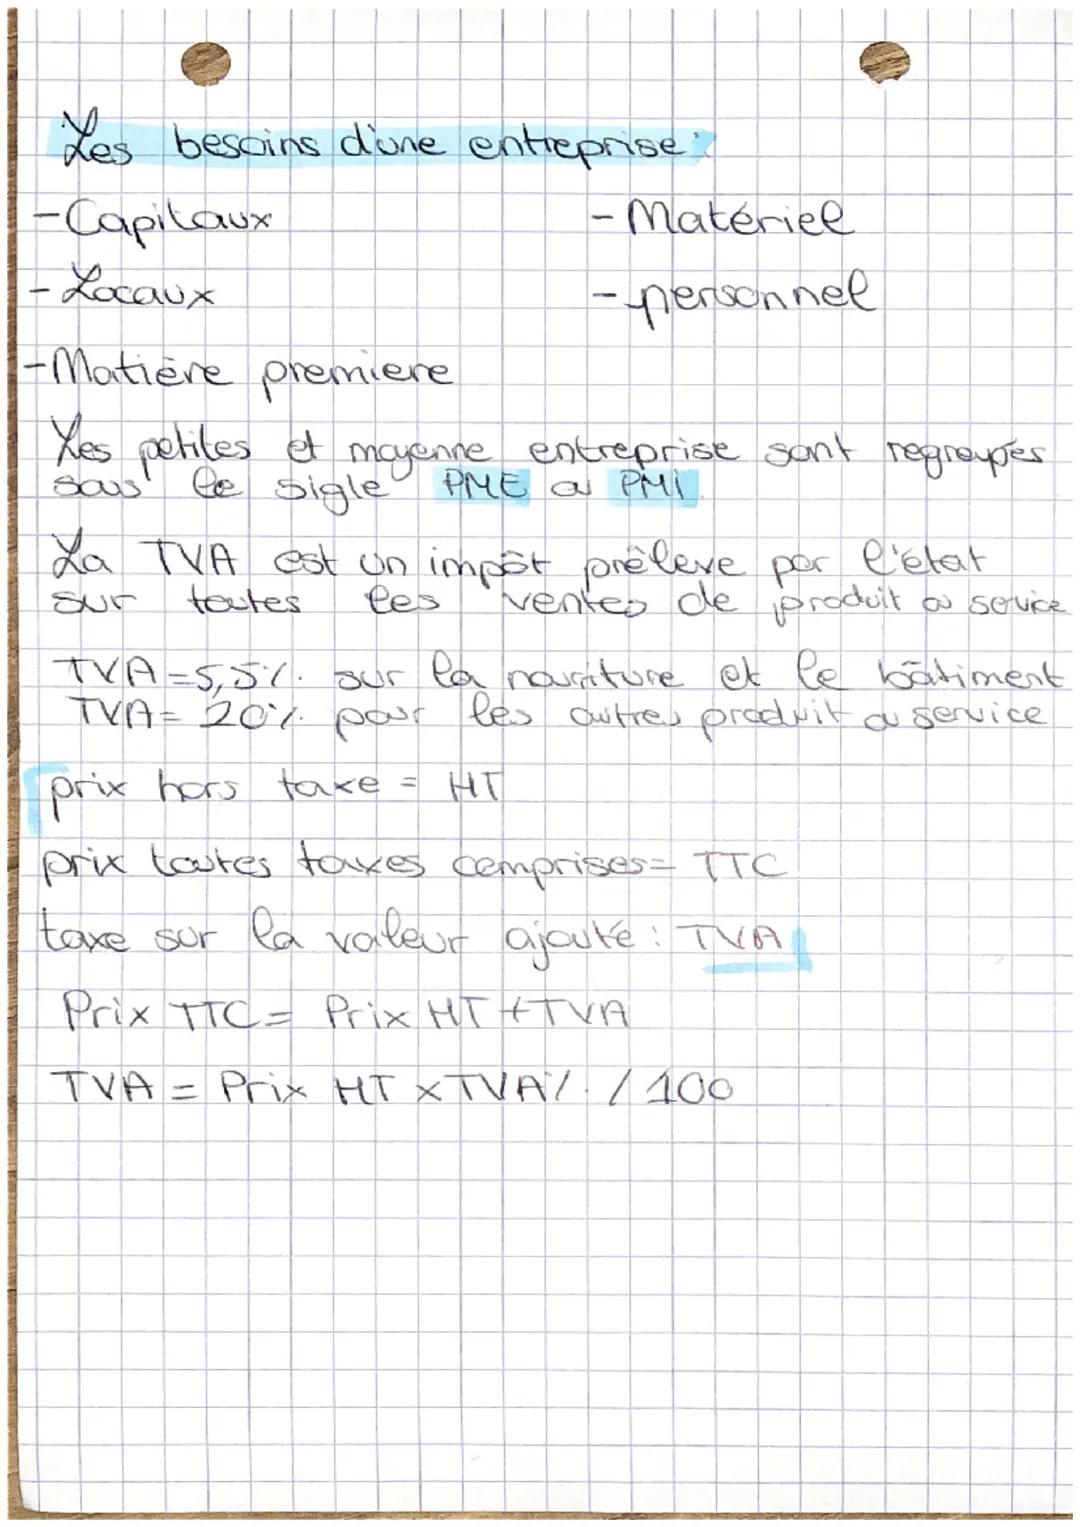 Les besoins d'une entreprise :
- Capitaux - Matériel
- Locaux - personnel
- Matière premiere
Les petites et moyenne entreprise sont regroupés
sous le sigle PME ou PMI
La TVA est un impôt prélevé par l'état
sur toutes les ventes de produit ou service
TVA = 5,5% sur la nourriture et le bâtiment
TVA = 20% pour les autres produit ou service
prix hors taxe = HT
prix toutes taxes comprises = TTC
taxe sur la valeur ajouté : TVA
Prix TTC = Prix HT + TVA
TVA = Prix HT x TVA% / 100